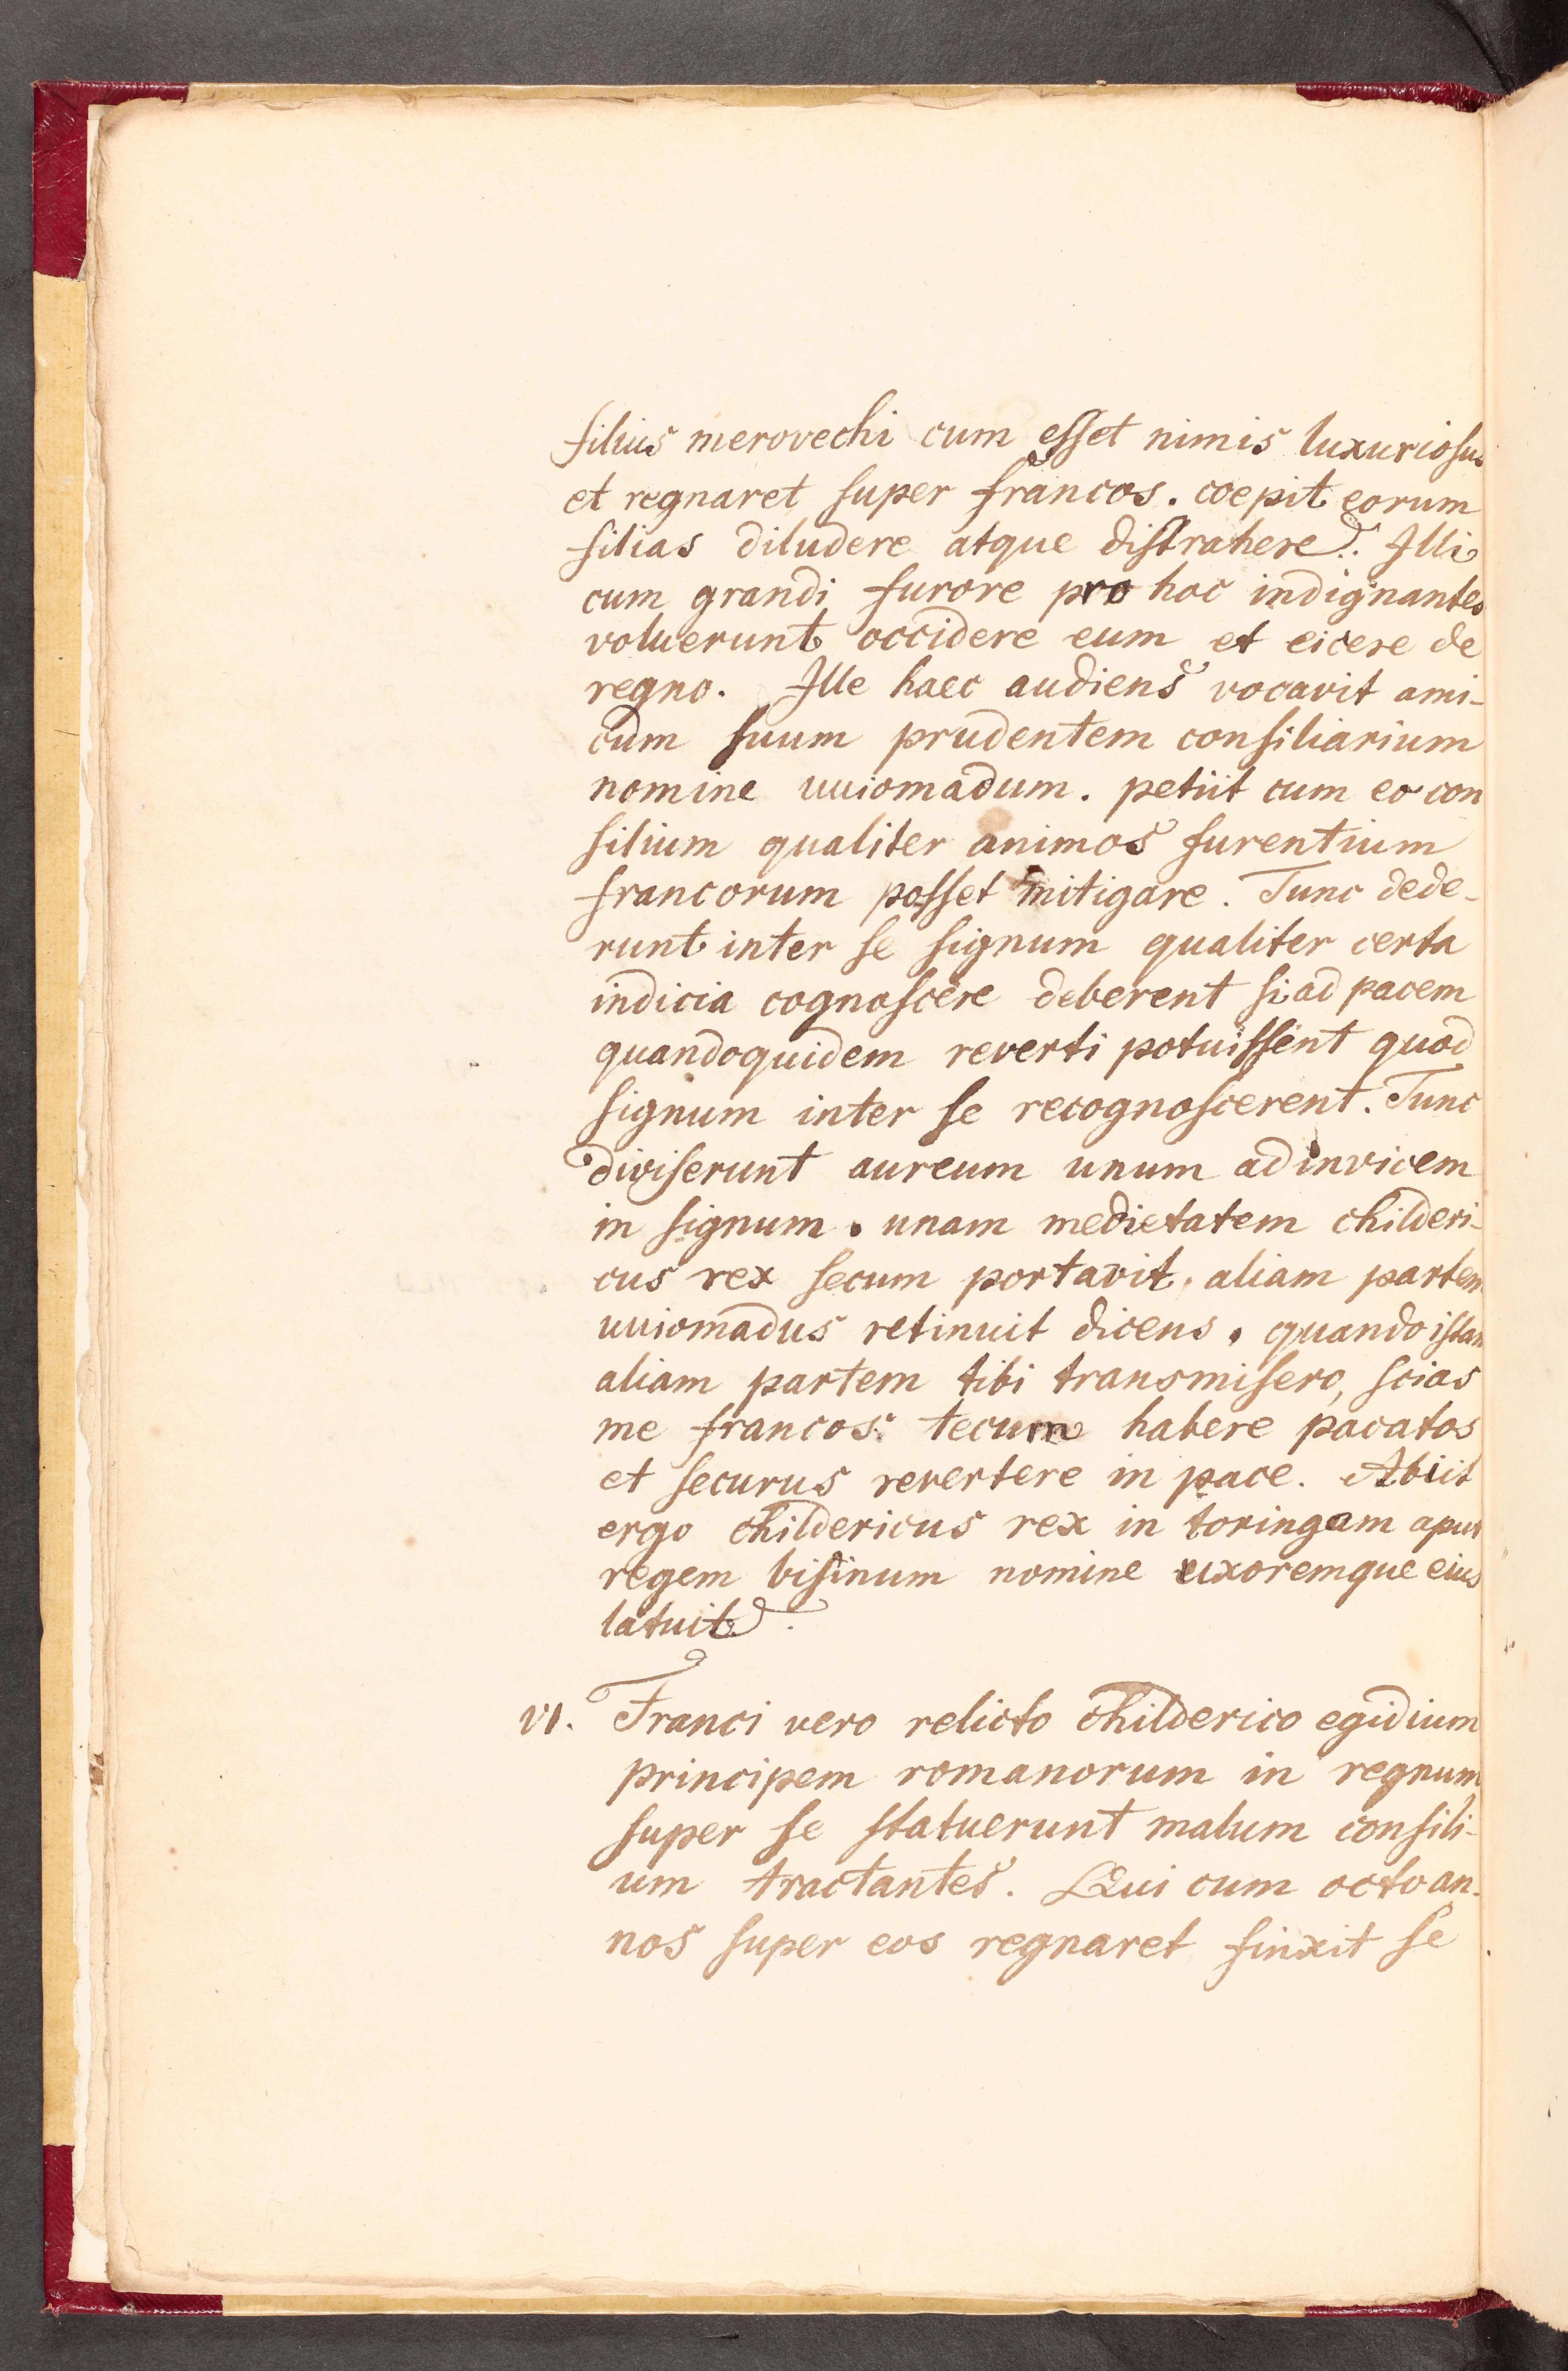 filius merovechi cum esset nimis luxuriosus
et regnaret super francos. coepit eorum
filias diludere atque distrahere. Illi
cum grandi furore pro hoc indignantes
voluerunt occidere eum et eicere de
regno. Ille haec audiens vocavit ami-
cum suum prudentem consiliarium
nomine uuiomadum. petiit cum eo con
silium qualiter animos furentium
francorum posset mitigare. Tunc dede-
runt inter se signum qualiter certa
indicia cognoscere deberent si ad pacem
quandoquidem reverti potuissent quod
signum inter se recognoscerent. Tunc
diviserunt aureum unum ad invicem
in signum. unam medietatem childeri-
cus rex secum portavit. aliam partem
uuiomadus retinuit dicens. quando istam
aliam partem tibi transmisero, scias
me francos tecum habere pacatos
et securus revertere in pace. Abiit
ergo childericus rex in toringam aput
regem bisinum nomine uxoremque eius
latuit.
VI. Franci vero relicto childerico egidium
principem romanorum in regnum
super se statuerunt malum consili-
um tractantes. Qui cum octo an-
nos super eos regnaret finxit se